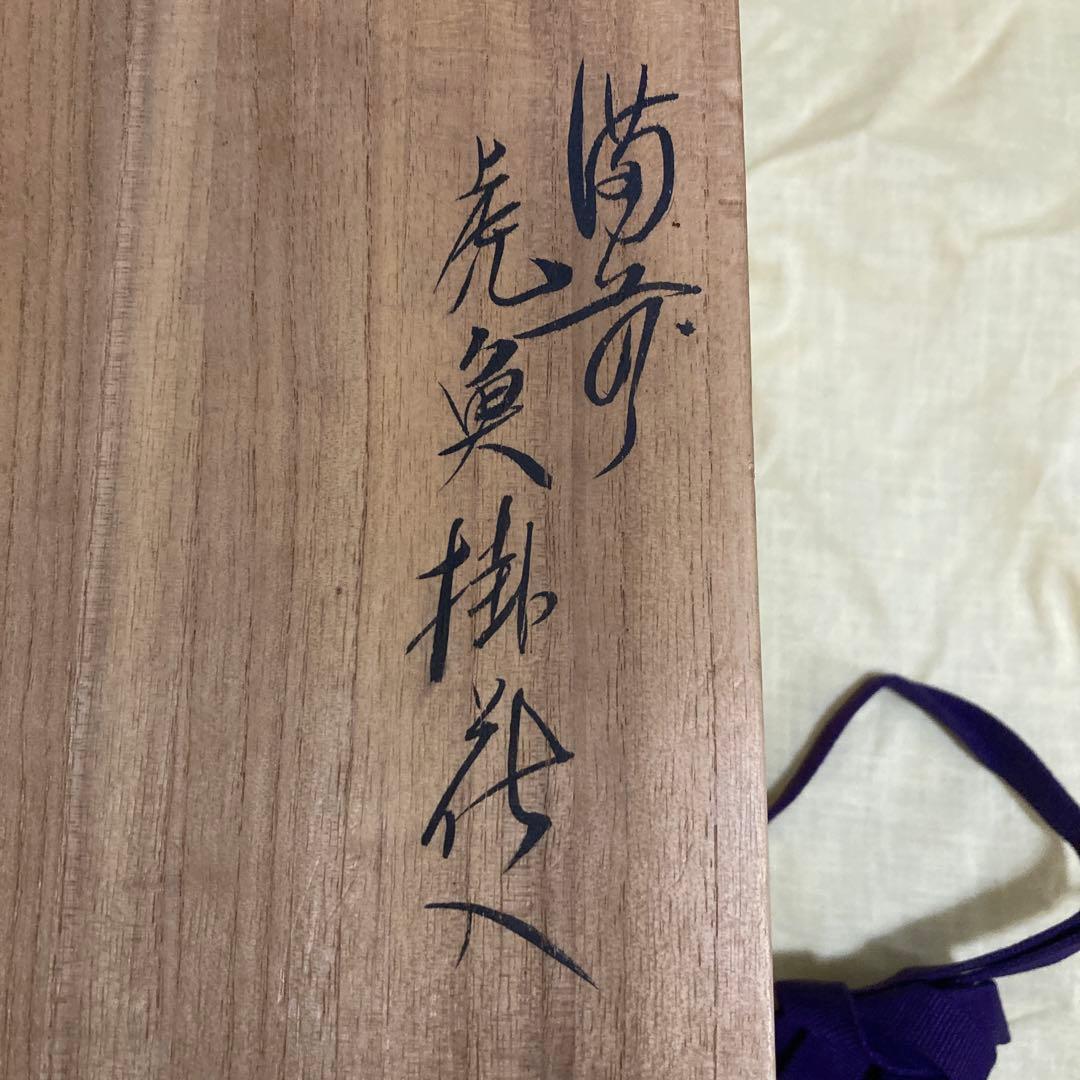 備前
虎魚掛花入